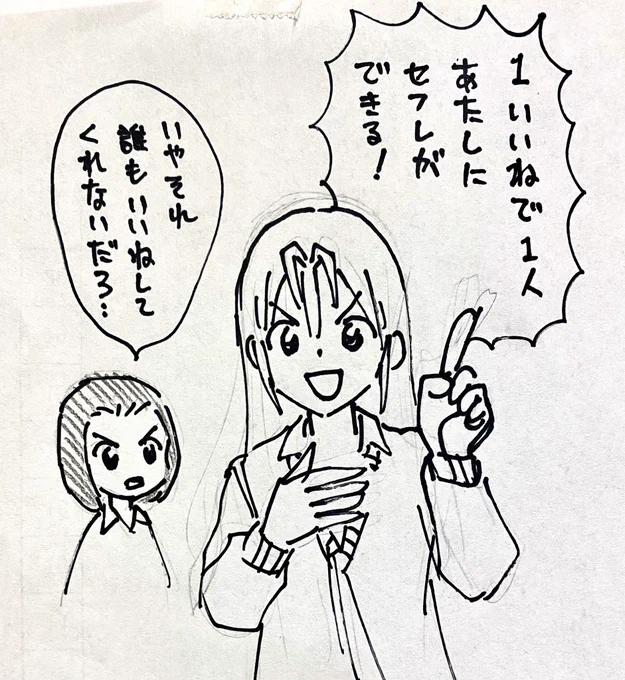 1いいねで1人
あたしに
セフレが
できる!
いやそれ
誰もいいねして
くれないだろ…